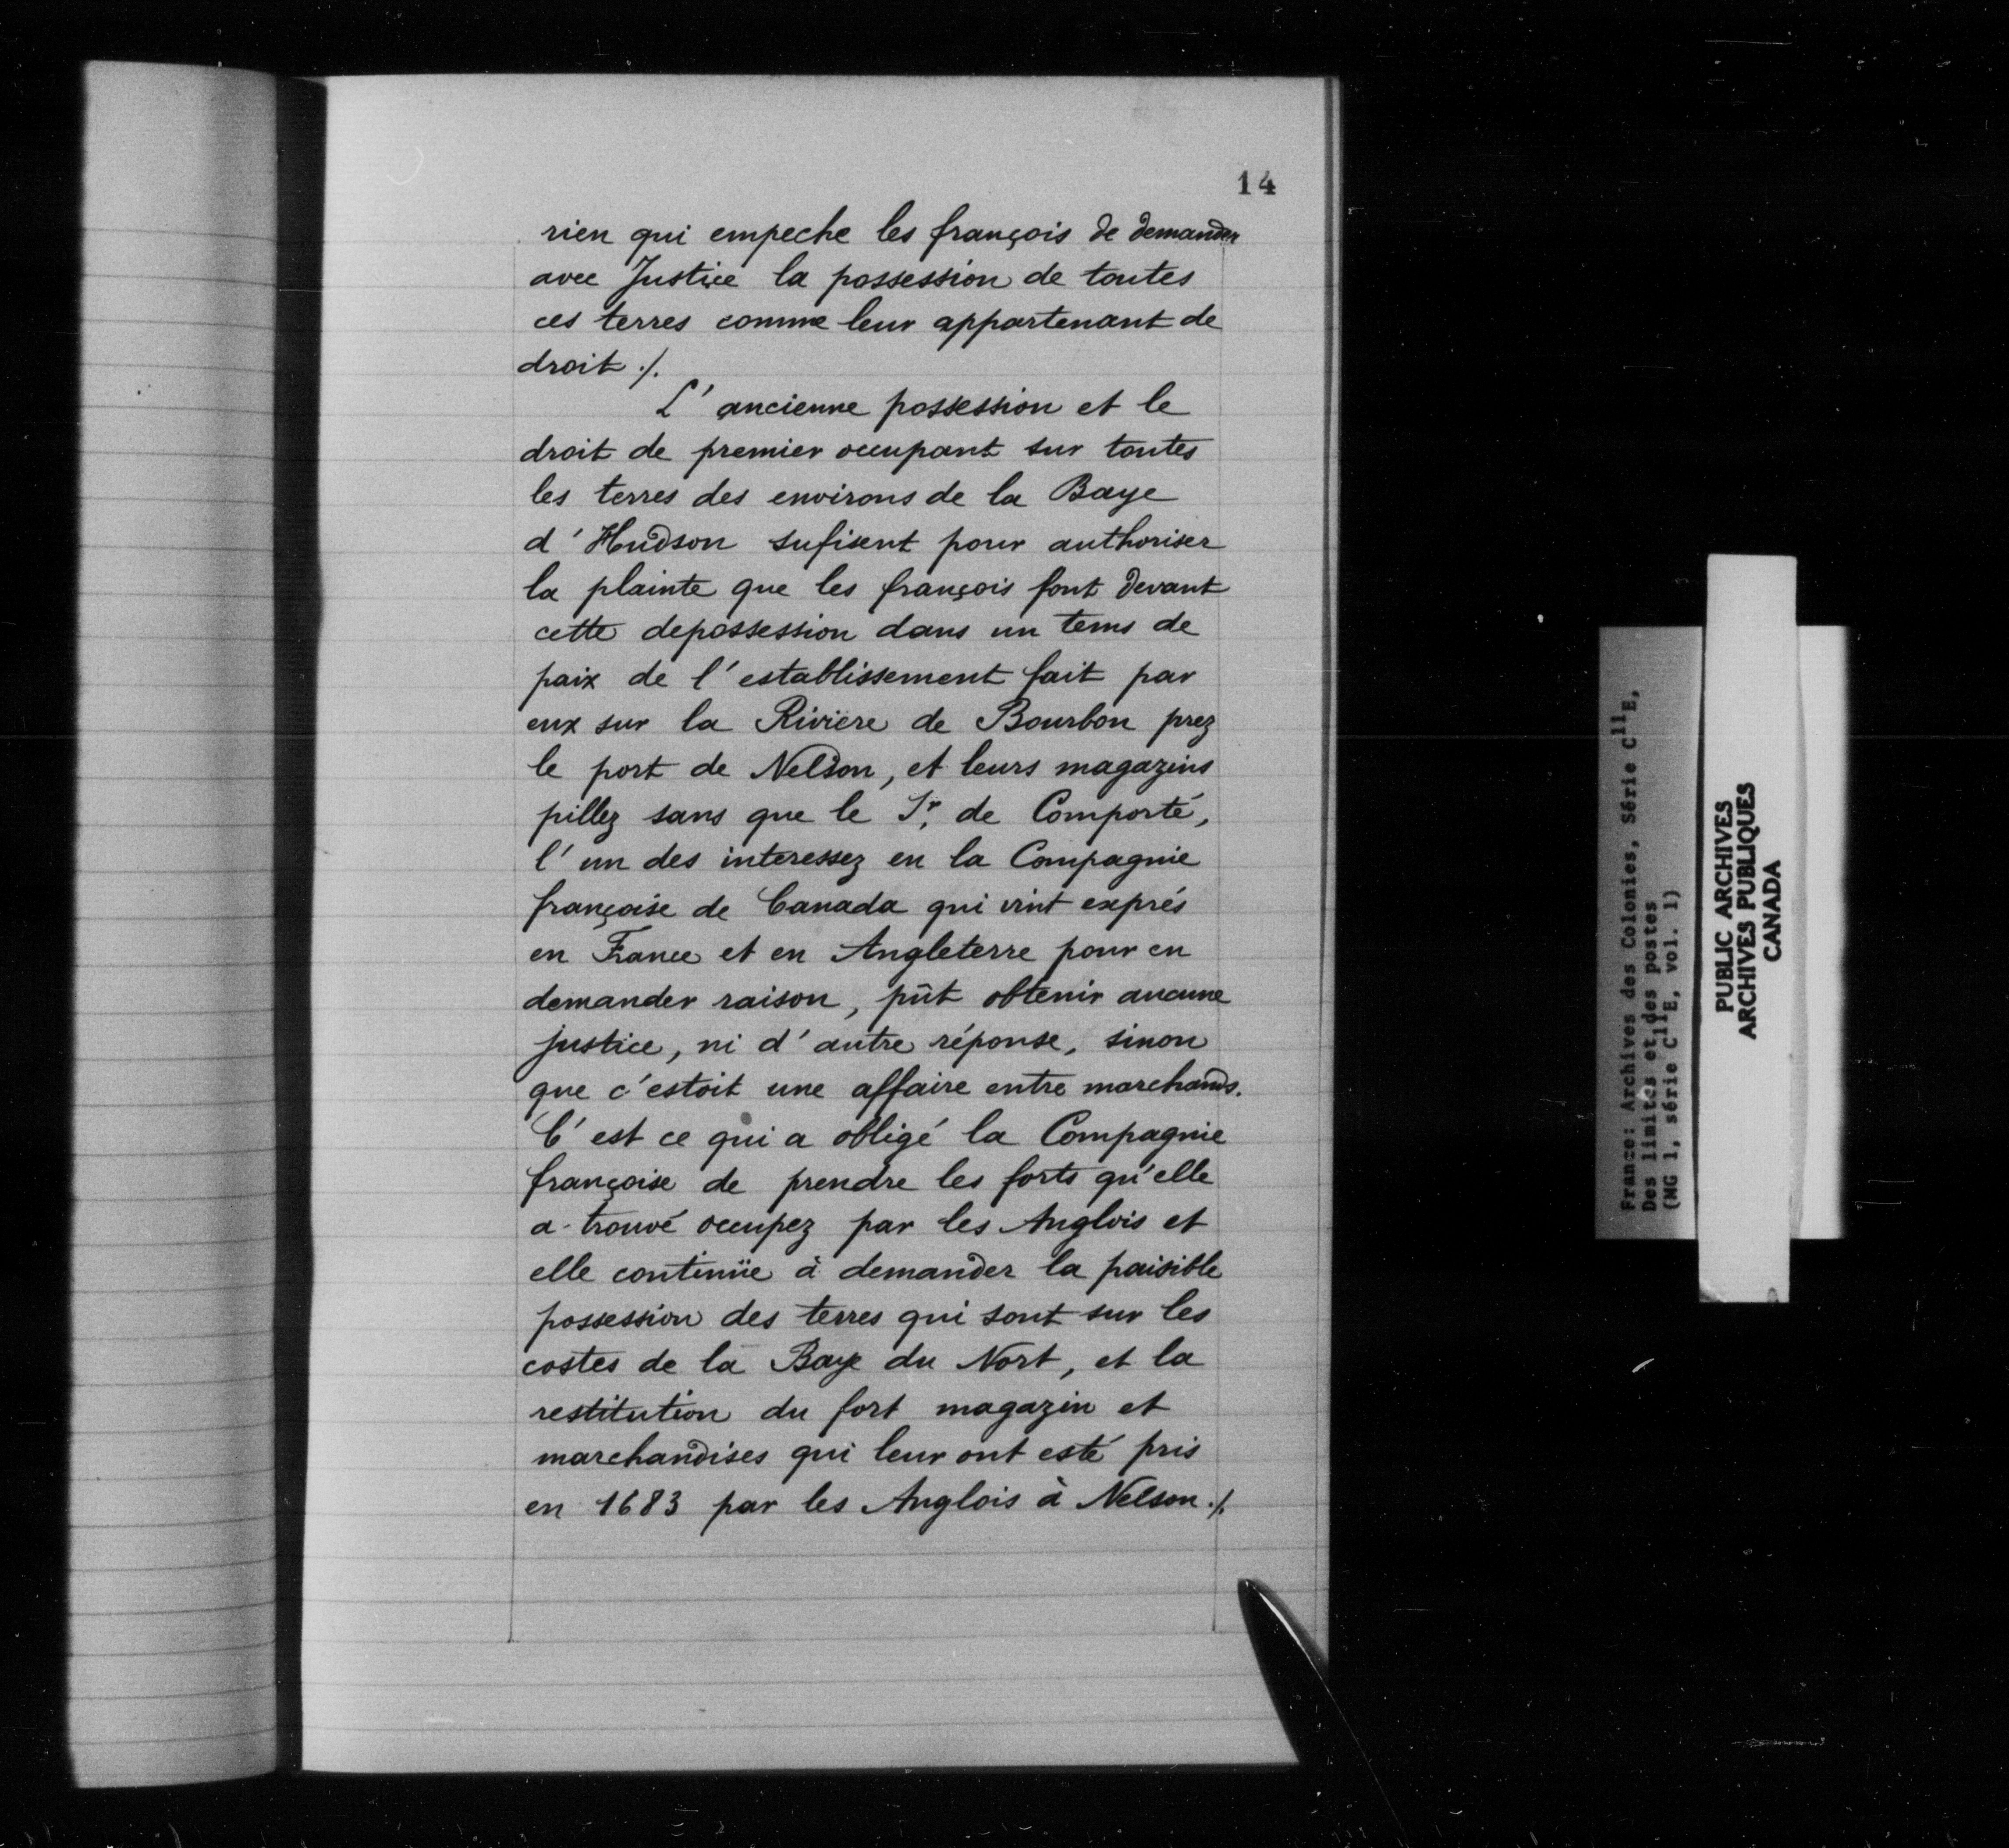 14
rien qui empeche les françois de demander
avec Justice la possession de toutes
ces terres comme leur appartenant de
droit ./.
L'ancienne possession et le
droit de premier occupant sur toutes
les terres des environs de la Baye
d'Hudson sufisent pour authoriser
la plainte que les françois font devant
cette depossession dans un tems de
paix de l'establissement fait par
eux sur la Riviere de Bourbon prez
le port de Nelson, et leurs magazins
pillez sans que le Sr. de Comporté,
l'un des interessez en la Compagnie
françoise de Canada qui vint exprés
en France et en Angleterre pour en
demander raison, pût obtenir aucune
justice, ni d'autre réponse, sinon
que c'estoit une affaire entre marchands.
C'est ce qui a obligé la Compagnie
françoise de prendre les forts qu'elle
a trouvé occupez par les Anglois et
elle continüe à demander la paisible
possession des terres qui sont sur les
costes de la Baye du Nort, et la
restitution du fort magazin et
marchandises qui leur ont esté pris
en 1683 par les Anglois à Nelson ./.
France: Archives des Colonies, Série C11E,
Des limites et des postes
(MG 1, série C11E, vol. 1)
PUBLIC ARCHIVES
ARCHIVES PUBLIQUES
CANADA